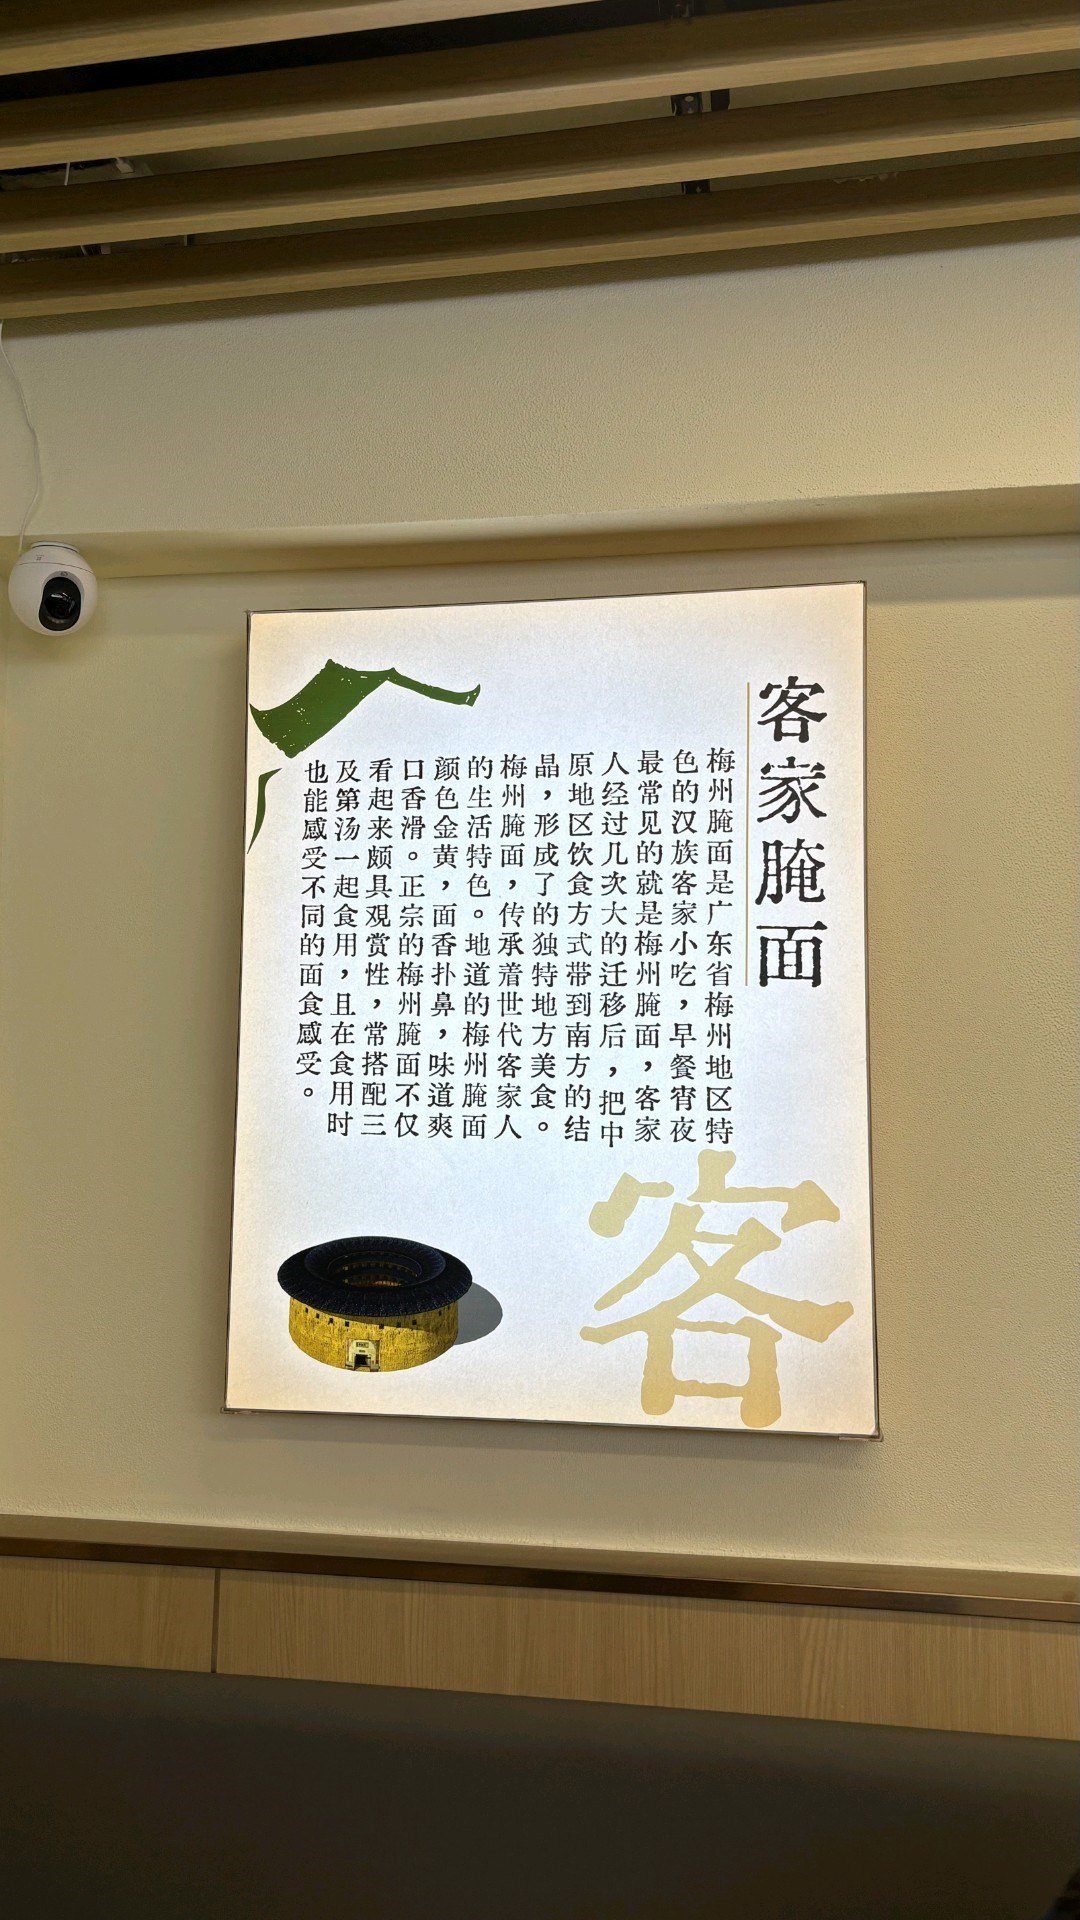 客家腌面
梅州腌面是广东省梅州地区特
色的汉族客家小吃，早餐宵夜
最常见的就是梅州腌面，客家
人经过几次大的迁移后，把中
原地区饮食方式带到南方的结
晶，形成了的独特地方美食。
梅州腌面，传承着世代客家人
的生活特色。地道的梅州腌面
颜色金黄，面香扑鼻，味道爽
口香滑。正宗的梅州腌面不仅
看起来颇具观赏性，常搭配三
及第汤一起食用，且在食用时
也能感受不同的面食感受。
客